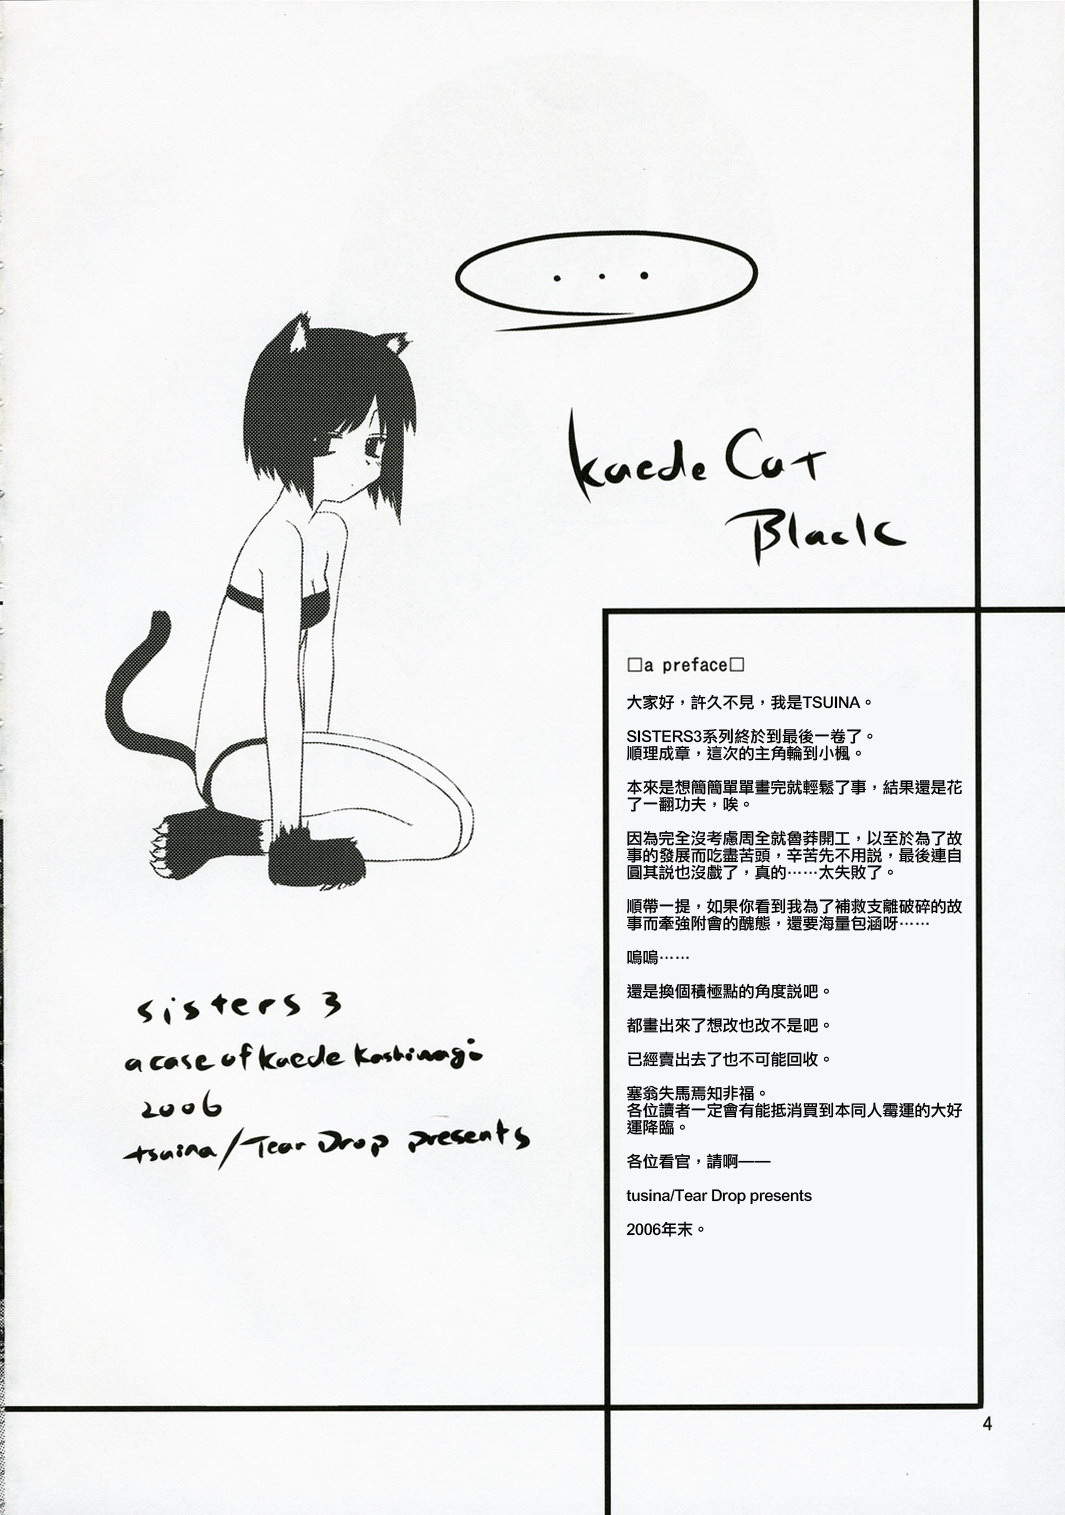 ...
kaede Cat
Black
□a preface□
大家好，許久不見，我是TSUINA。
SISTERS3系列終於到最後一卷了。
順理成章，這次的主角輪到小楓。
本來是想簡簡單單畫完就輕鬆了事，結果還是花
了一翻功夫，唉。
因為完全沒考慮周全就魯莽開工，以至於為了故
事的發展而吃盡苦頭，辛苦先不用説，最後連自
圓其説也沒戲了，真的……太失敗了。
順帶一提，如果你看到我為了補救支離破碎的故
事而牽強附會的醜態，還要海量包涵呀……
嗚嗚……
還是換個積極點的角度説吧。
都畫出來了想改也改不是吧。
已經賣出去了也不可能回收。
塞翁失馬焉知非福。
各位讀者一定會有能抵消買到本同人霉運的大好
運降臨。
各位看官，請啊——
tusina/Tear Drop presents
2006年末。
sisters 3
a case of kaede kashinagi
2006
tsuina/Tear Drop presents
4